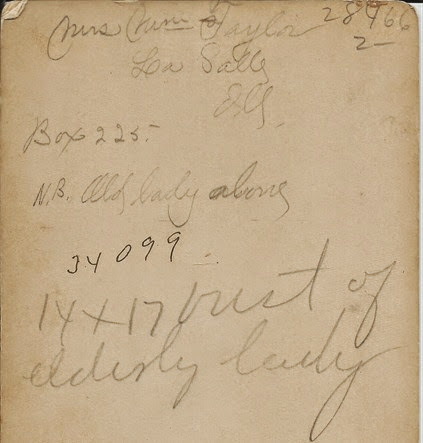 Mrs Taylor 28466
2-
La Salle
Ills.
Box 225-
N.B. Old lady alone
34099
14 x 17 bust of
elderly lady